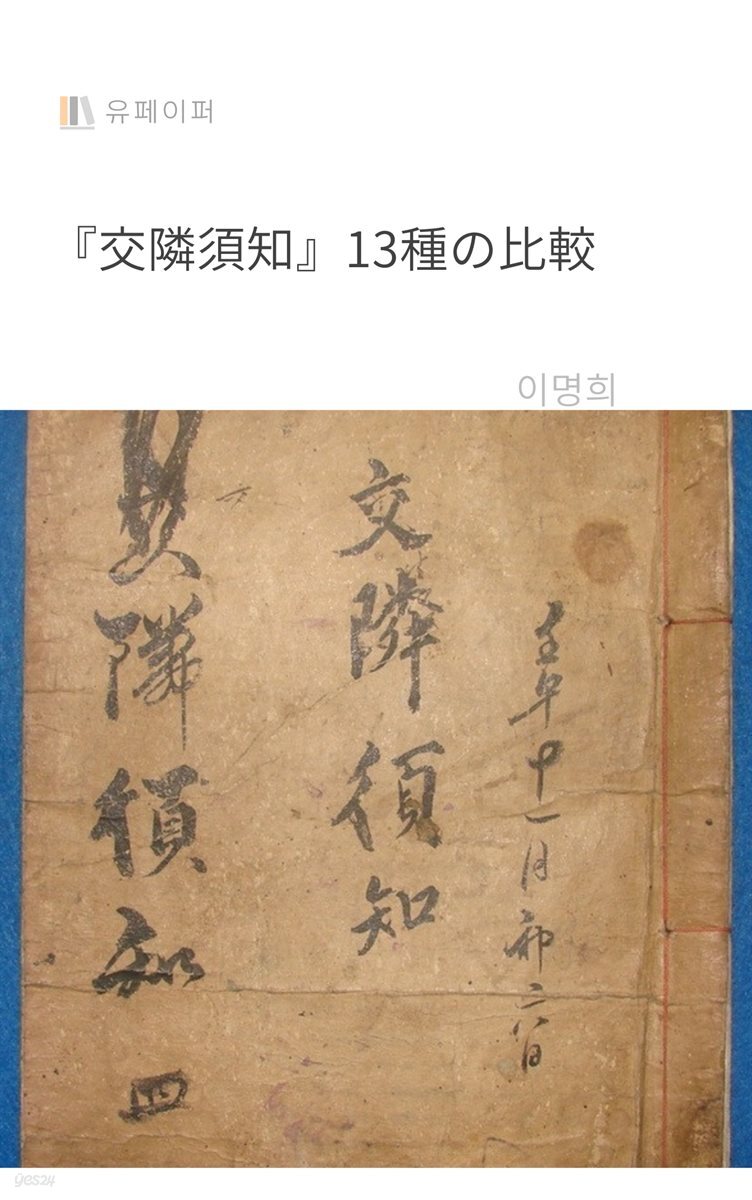 유페이퍼
『交隣須知』13種の比較
이명희
壬午十一月
交隣須知
隣須知 四
yes24